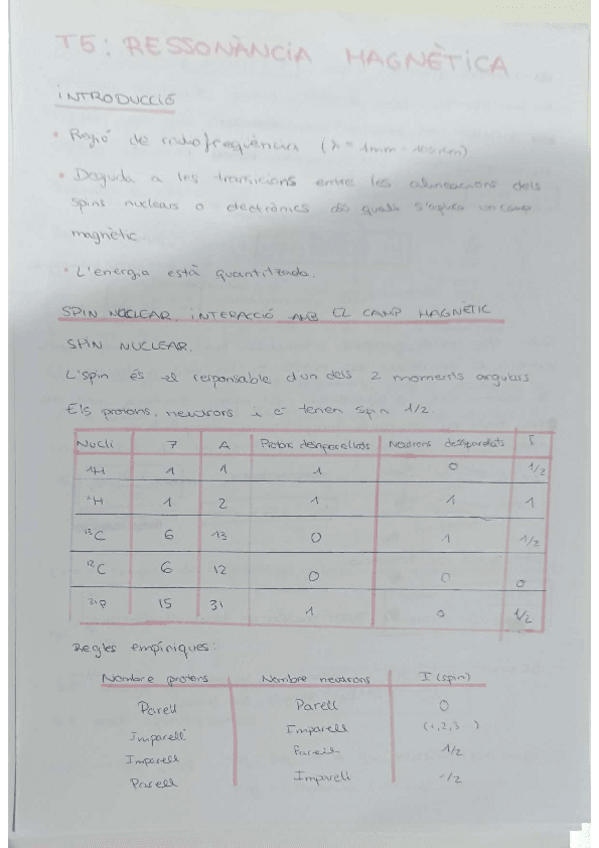 T5: RESSONÀNCIA MAGNÈTICA
INTRODUCCIÓ
• Regió de radiofreqüència (λ = 1mm -
• Deguda a les transicions entre les alineacions dels
spins nuclears o electrònics als quals s'aplica un camp
magnètic.
• L'energia està quantitzada.
SPIN NUCLEAR. INTERACCIÓ AMB EL CAMP MAGNÈTIC
SPIN NUCLEAR.
L'spin és el responsable d'un dels 2 moments angulars
Els protons, neutrons i e⁻ tenen spin 1/2.
Nucli Z A Protons desaparellats Neutrons desaparellats I
¹H 1 1 1 0 1/2
²H 1 2 1 1 1
¹³C 6 13 0 1 1/2
¹²C 6 12 0 0 0
³¹P 15 31 1 0 1/2
Regles empíriques:
Nombre protons Nombre neutrons I (spin)
Parell Parell 0
Imparell Imparell (1,2,3..)
Imparell Parell 1/2
Parell Imparell 1/2